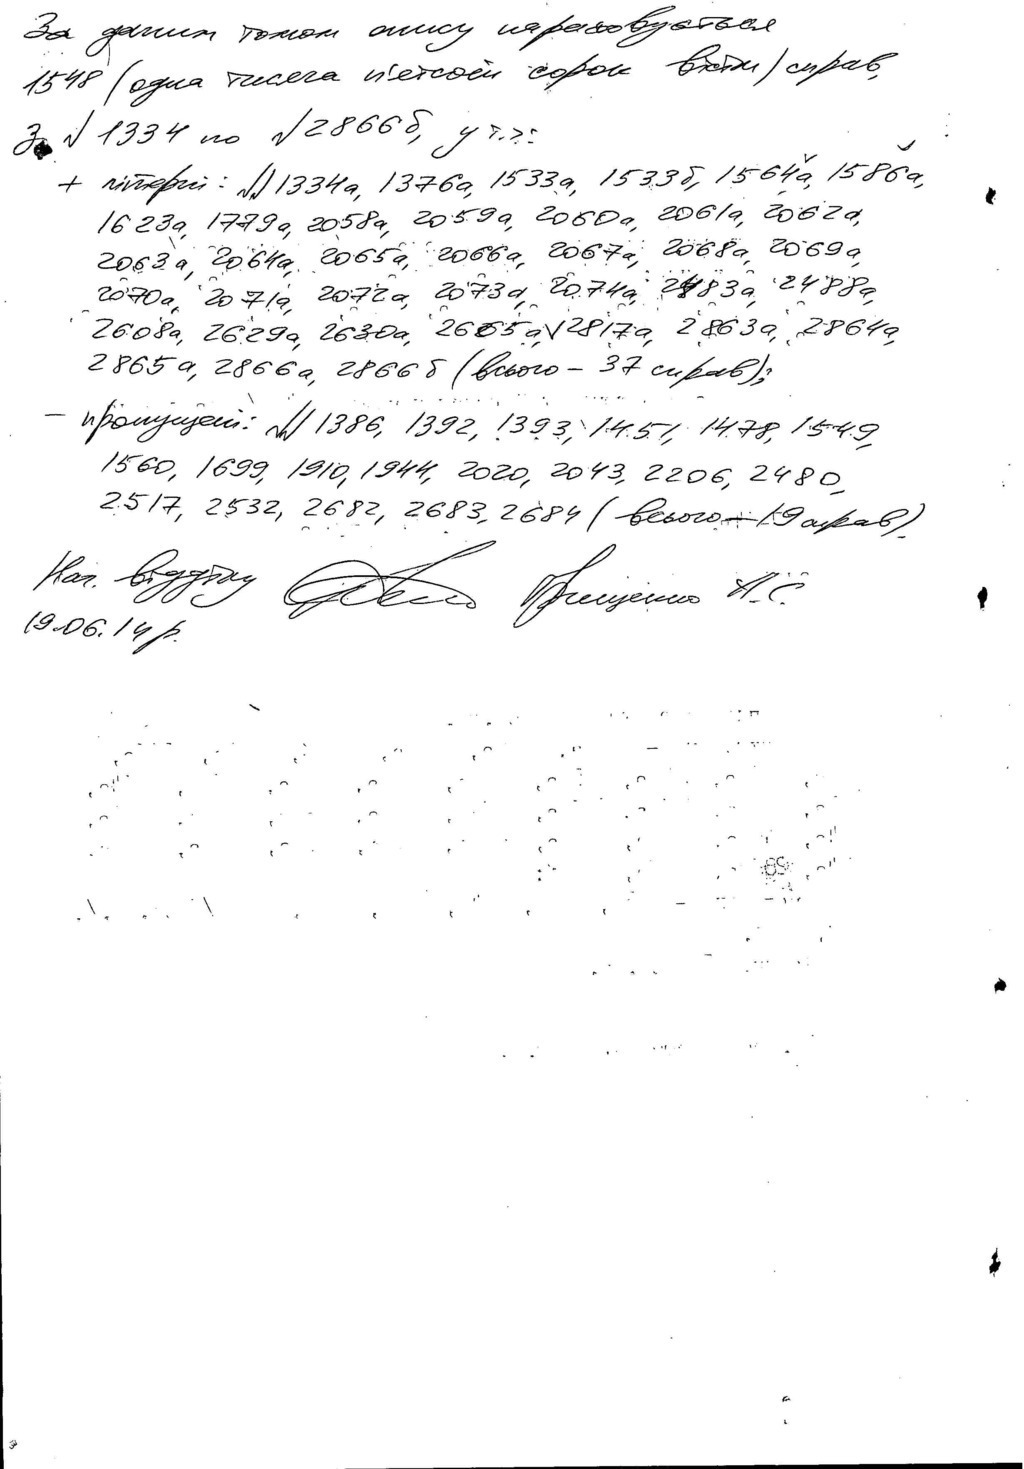 За даним томом опису нараховується
1548 (одна тисяча п'ятсот сорок вісім) справ,
З № 1334 по № 2866б, у т.ч.:
+ літерні: №№ 1334а, 1376а, 1533а, 1533б, 1564а, 1586а,
1623а, 1779а, 2058а, 2059а, 2060а, 2061а, 2062а,
2063а, 2064а, 2065а, 2066а, 2067а, 2068а, 2069а,
2070а, 2071а, 2072а, 2073а, 2074а, 2483а, 2488а,
2608а, 2629а, 2630а, 2665а, 2817а, 2863а, 2864а,
2865а, 2866а, 2866б (всього – 37 справ);
– пропущені: №№ 1386, 1392, 1393, 1451, 1478, 1549,
1560, 1699, 1910, 1944, 2020, 2043, 2206, 2480,
2517, 2532, 2682, 2683, 2684 (всього – 19 справ).
Нач. відділу Онищенко А.С.
19.06.14 р.